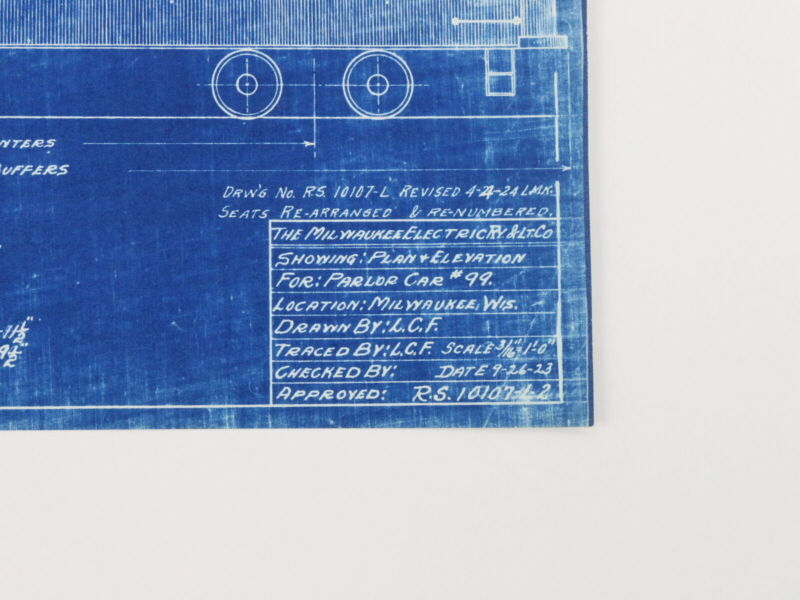 NTERS
UFFERS
DRW'G No. RS. 10107-L REVISED 4-24-24 L.M.K.
SEATS RE-ARRANGED & RE-NUMBERED.
THE MILWAUKEE ELECTRIC RY & LT. CO
SHOWING: PLAN & ELEVATION
FOR: PARLOR CAR #99.
LOCATION: MILWAUKEE, WIS.
DRAWN BY: L.C.F.
TRACED BY: L.C.F. SCALE-3/16"=1'-0"
CHECKED BY: DATE 9-26-23
APPROVED: R.S. 10107-L-2
-11½"
9½"